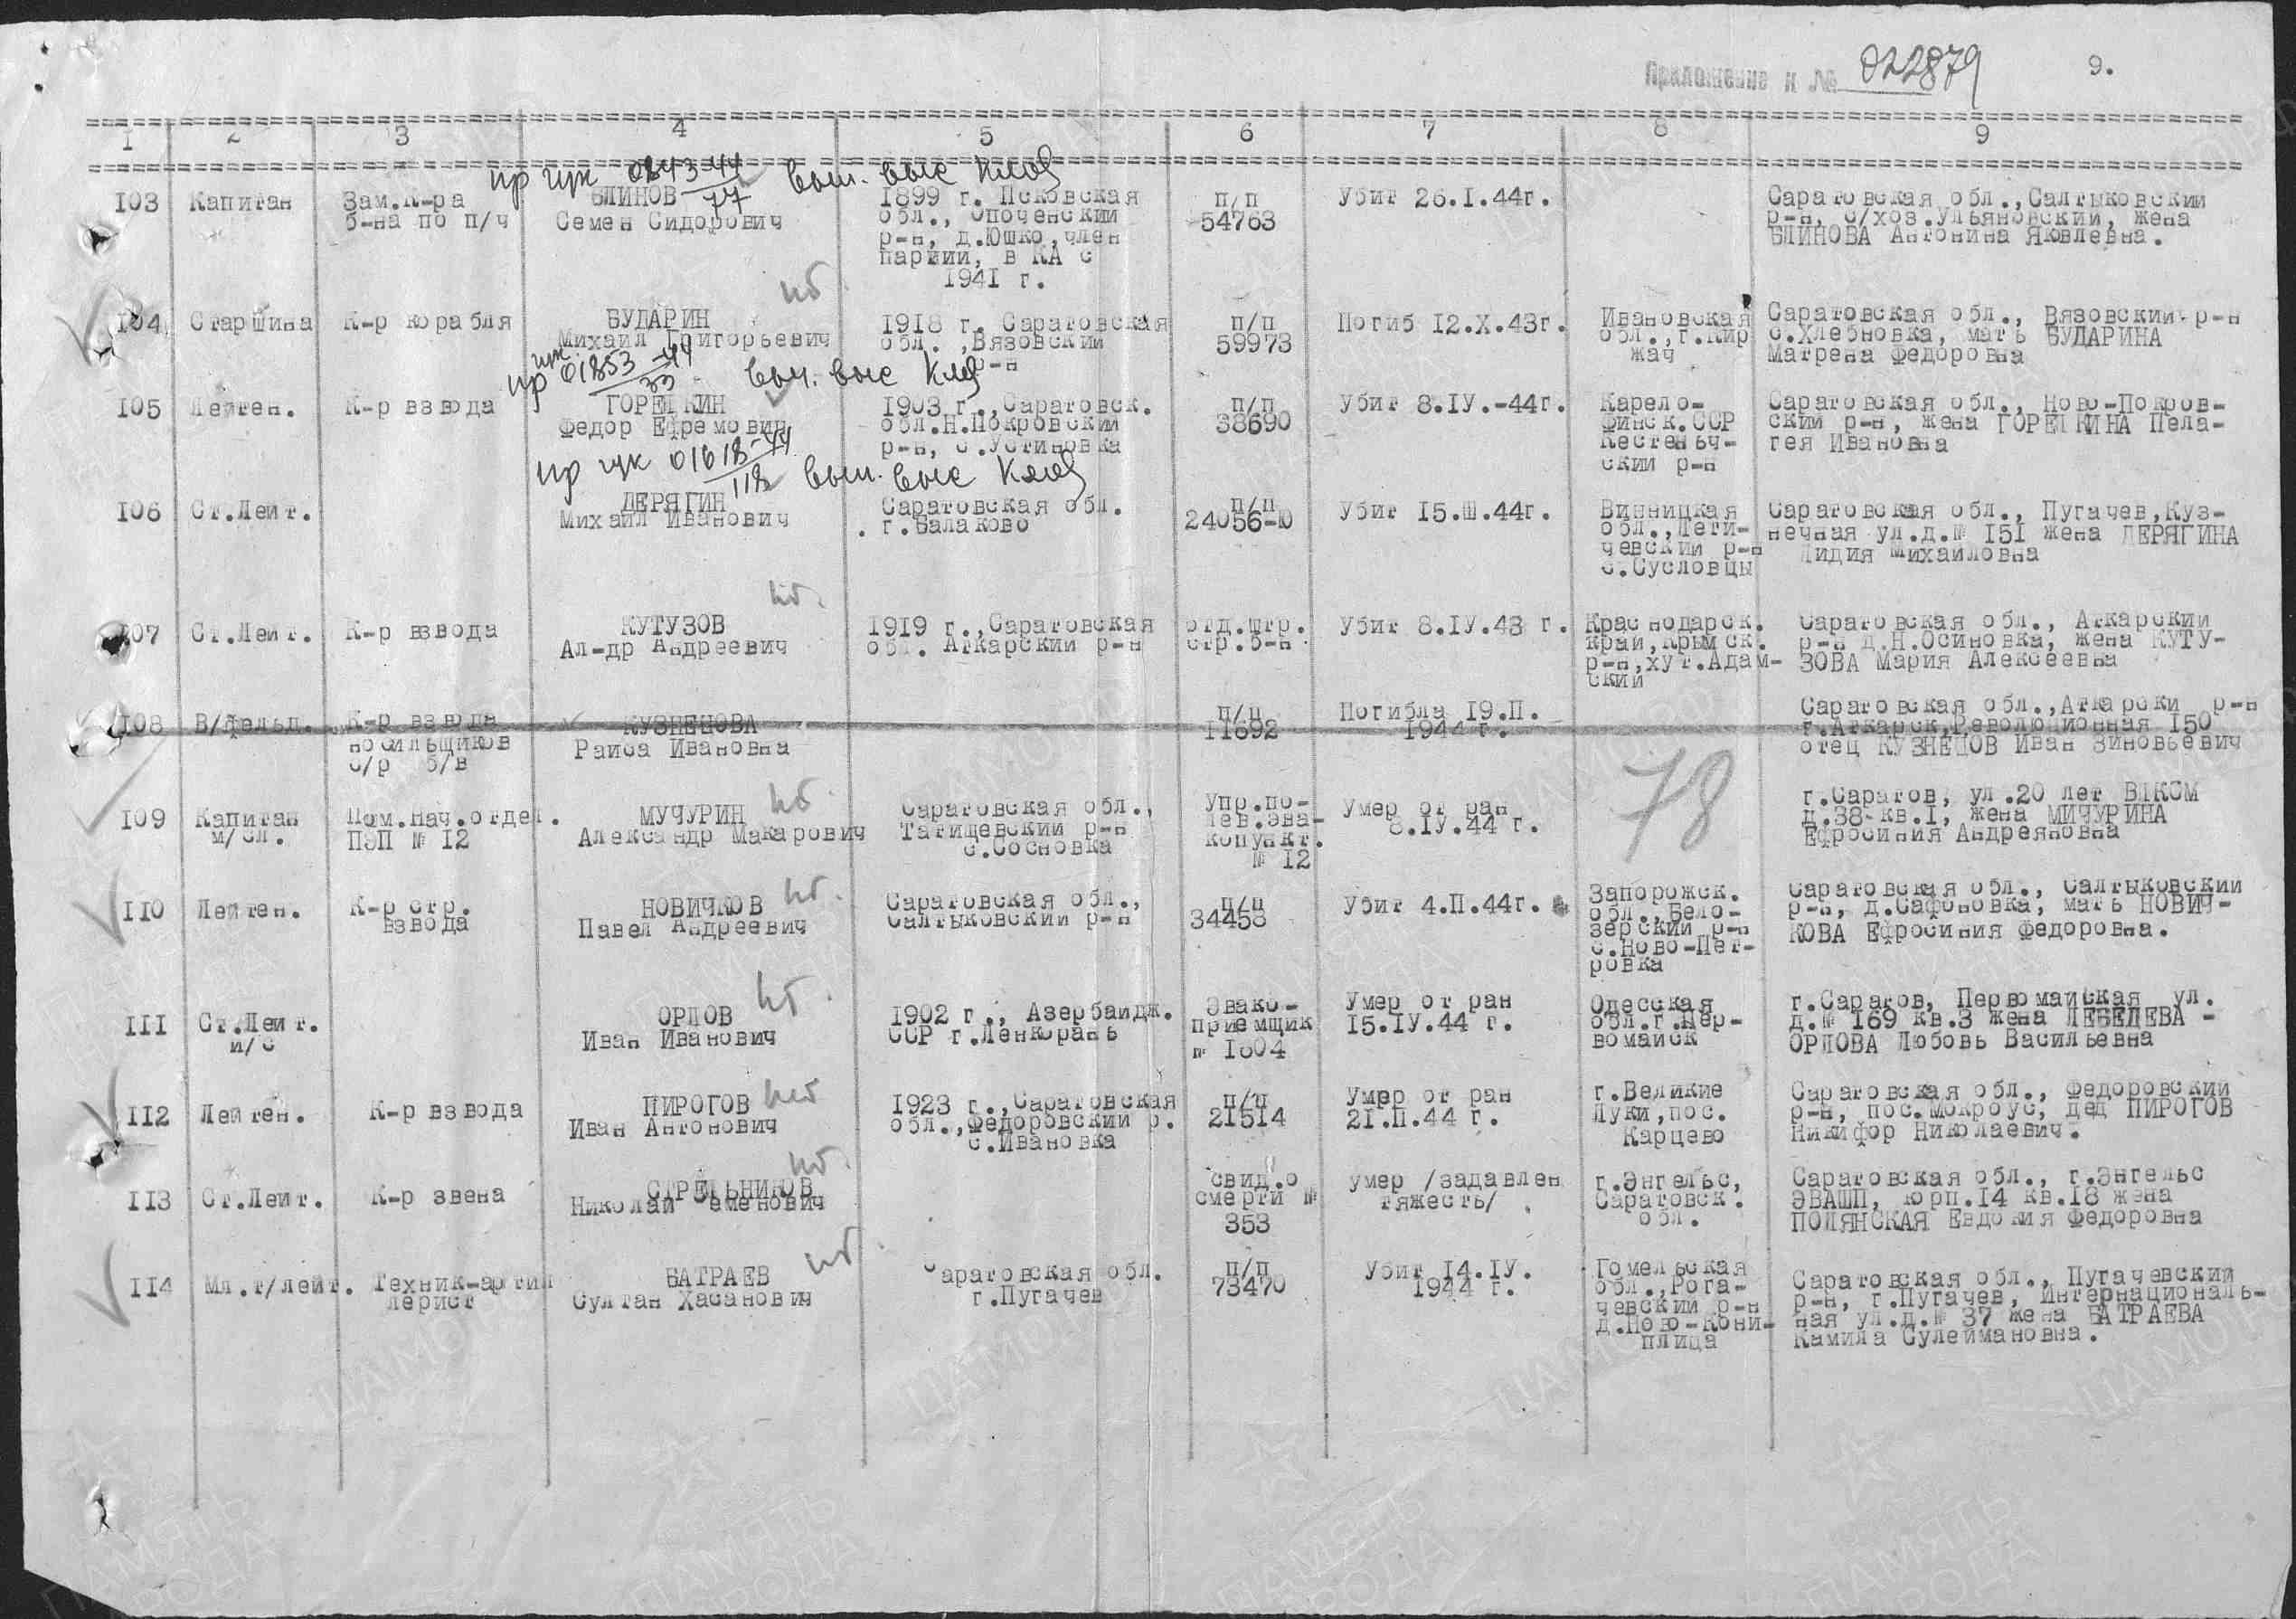 Приложение к № 022879
9.
1 2 3 4 5 6 7 8 9
пр гук 0843-44/77
103 Капитан Зам.к-ра б-на по п/ч БЛИНОВ Семен Сидорович 1899 г. Псковская обл., Опоченский р-н, д.Юшко, член партии, в КА с 1941 г. п/п 54763 Убит 26.I.44г. Саратовская обл.,Салтыковский р-н, с/хоз.Ульяновский, жена БЛИНОВА Антонина Яковлевна.
нб
104 Старшина К-р корабля БУДАРИН Михаил Григорьевич 1918 г. Саратовская обл. ,Вязовский р-н п/п 59973 Погиб 12.X.43г. Ивановская обл.,г.Кир жач Саратовская обл., Вязовский р-н с.Хлебновка, мать БУДАРИНА Матрена Федоровна
пр гук 01853-44/33
105 Лейтен. К-р взвода ГОРЕЛКИН Федор Ефремович 1903 г.,Саратовск. обл.Н.Покровский р-н, с.Устиновка п/п 38690 Убит 8.IУ.-44г. Карело- Финск.ССР Кестеньг- ский р-н Саратовская обл., Ново-Покров- ский р-н, жена ГОРЕЛКИНА Пела- гея Ивановна
пр гук 01618-44/118
106 Ст.Лейт. ДЕРЯГИН Михаил Иванович Саратовская обл. г.Балаково п/п 24056-Ю Убит 15.Ш.44г. Винницкая обл.,Лети- чевский р-н с.Сусловцы Саратовская обл., Пугачев,Куз- нечная ул.д.№ 151 жена ДЕРЯГИНА Лидия Михайловна
нб.
107 Ст.Лейт. К-р взвода КУТУЗОВ Ал-др Андреевич 1919 г.,Саратовская обл. Аткарский р-н отд.штр. стр.б-н Убит 8.IУ.43 г. Краснодарск. край,Крымск. р-н,хут.Адам- ский Саратовская обл., Аткарский р-н д.Н.Осиновка, жена КУТУ- ЗОВА Мария Алексеевна
108 В/фельд. К-р взвода носильщиков с/р б/в КУЗНЕЦОВА Раиса Ивановна п/п 11692 Погибла 19.П. 1944 г. Саратовская обл.,Аткарски р-н г.Аткарск,Революционная 150 отец КУЗНЕЦОВ Иван Зиновьевич
78
нб.
109 Капитан м/сл. Пом.нач.отдел. ПЭП № 12 МУЧУРИН Александр Макарович Саратовская обл., Татищевский р-н с.Сосновка Упр.по- лев.эва- копункт. № 12 Умер от ран 8.IУ.44 г. г.Саратов, ул.20 лет ВЛКСМ д.38-кв.1, жена МИЧУРИНА Ефросиния Андреяновна
нб.
110 Лейтен. К-р стр. взвода НОВИЧКОВ Павел Андреевич Саратовская обл., Салтыковский р-н п/п 34458 Убит 4.П.44г. Запорожск. обл.,Бело- зерский р-н с.Ново-Пет- ровка Саратовская обл., Салтыковский р-н, д.Сафоновка, мать НОВИЧ- КОВА Ефросиния Федоровна.
нб.
111 Ст.Лейт. и/с ОРЛОВ Иван Иванович 1902 г., Азербайдж. ССР г.Ленкорань Эвако- приемщик № 1604 Умер от ран 15.IУ.44 г. Одесская обл.г.Пер- вомайск г.Саратов, Первомайская ул. д.№ 169 кв.3 жена ЛЕБЕДЕВА - ОРЛОВА Любовь Васильевна
нб
112 Лейтен. К-р взвода ПИРОГОВ Иван Антонович 1923 г.,Саратовская обл.,Федоровский р. с.Ивановка п/п 21514 Умер от ран 21.П.44 г. г.Великие Луки,пос. Карцево Саратовская обл., Федоровский р-н, пос.Мокроус, дед ПИРОГОВ Никифор Николаевич.
нб.
113 Ст.Лейт. К-р звена СТРЕЛЬНИКОВ Николай Семенович свид.о смерти № 353 умер /задавлен тяжесть/ г.Энгельс, Саратовск. обл. Саратовская обл., г.Энгельс ЭВАШП, корп.14 кв.18 жена ПОЛЯНСКАЯ Евдокия Федоровна
нб.
114 Мл.т/лейт. Техник-артил лерист БАТРАЕВ Султан Хасанович Саратовская обл. г.Пугачев п/п 73470 Убит 14.IУ. 1944 г. Гомельская обл.,Рога- чевский р-н д.Ново-Кони- плица Саратовская обл., Пугачевский р-н, г.Пугачев, Интернациональ- ная ул.д.№ 37 жена БАТРАЕВА Камила Сулеймановна.